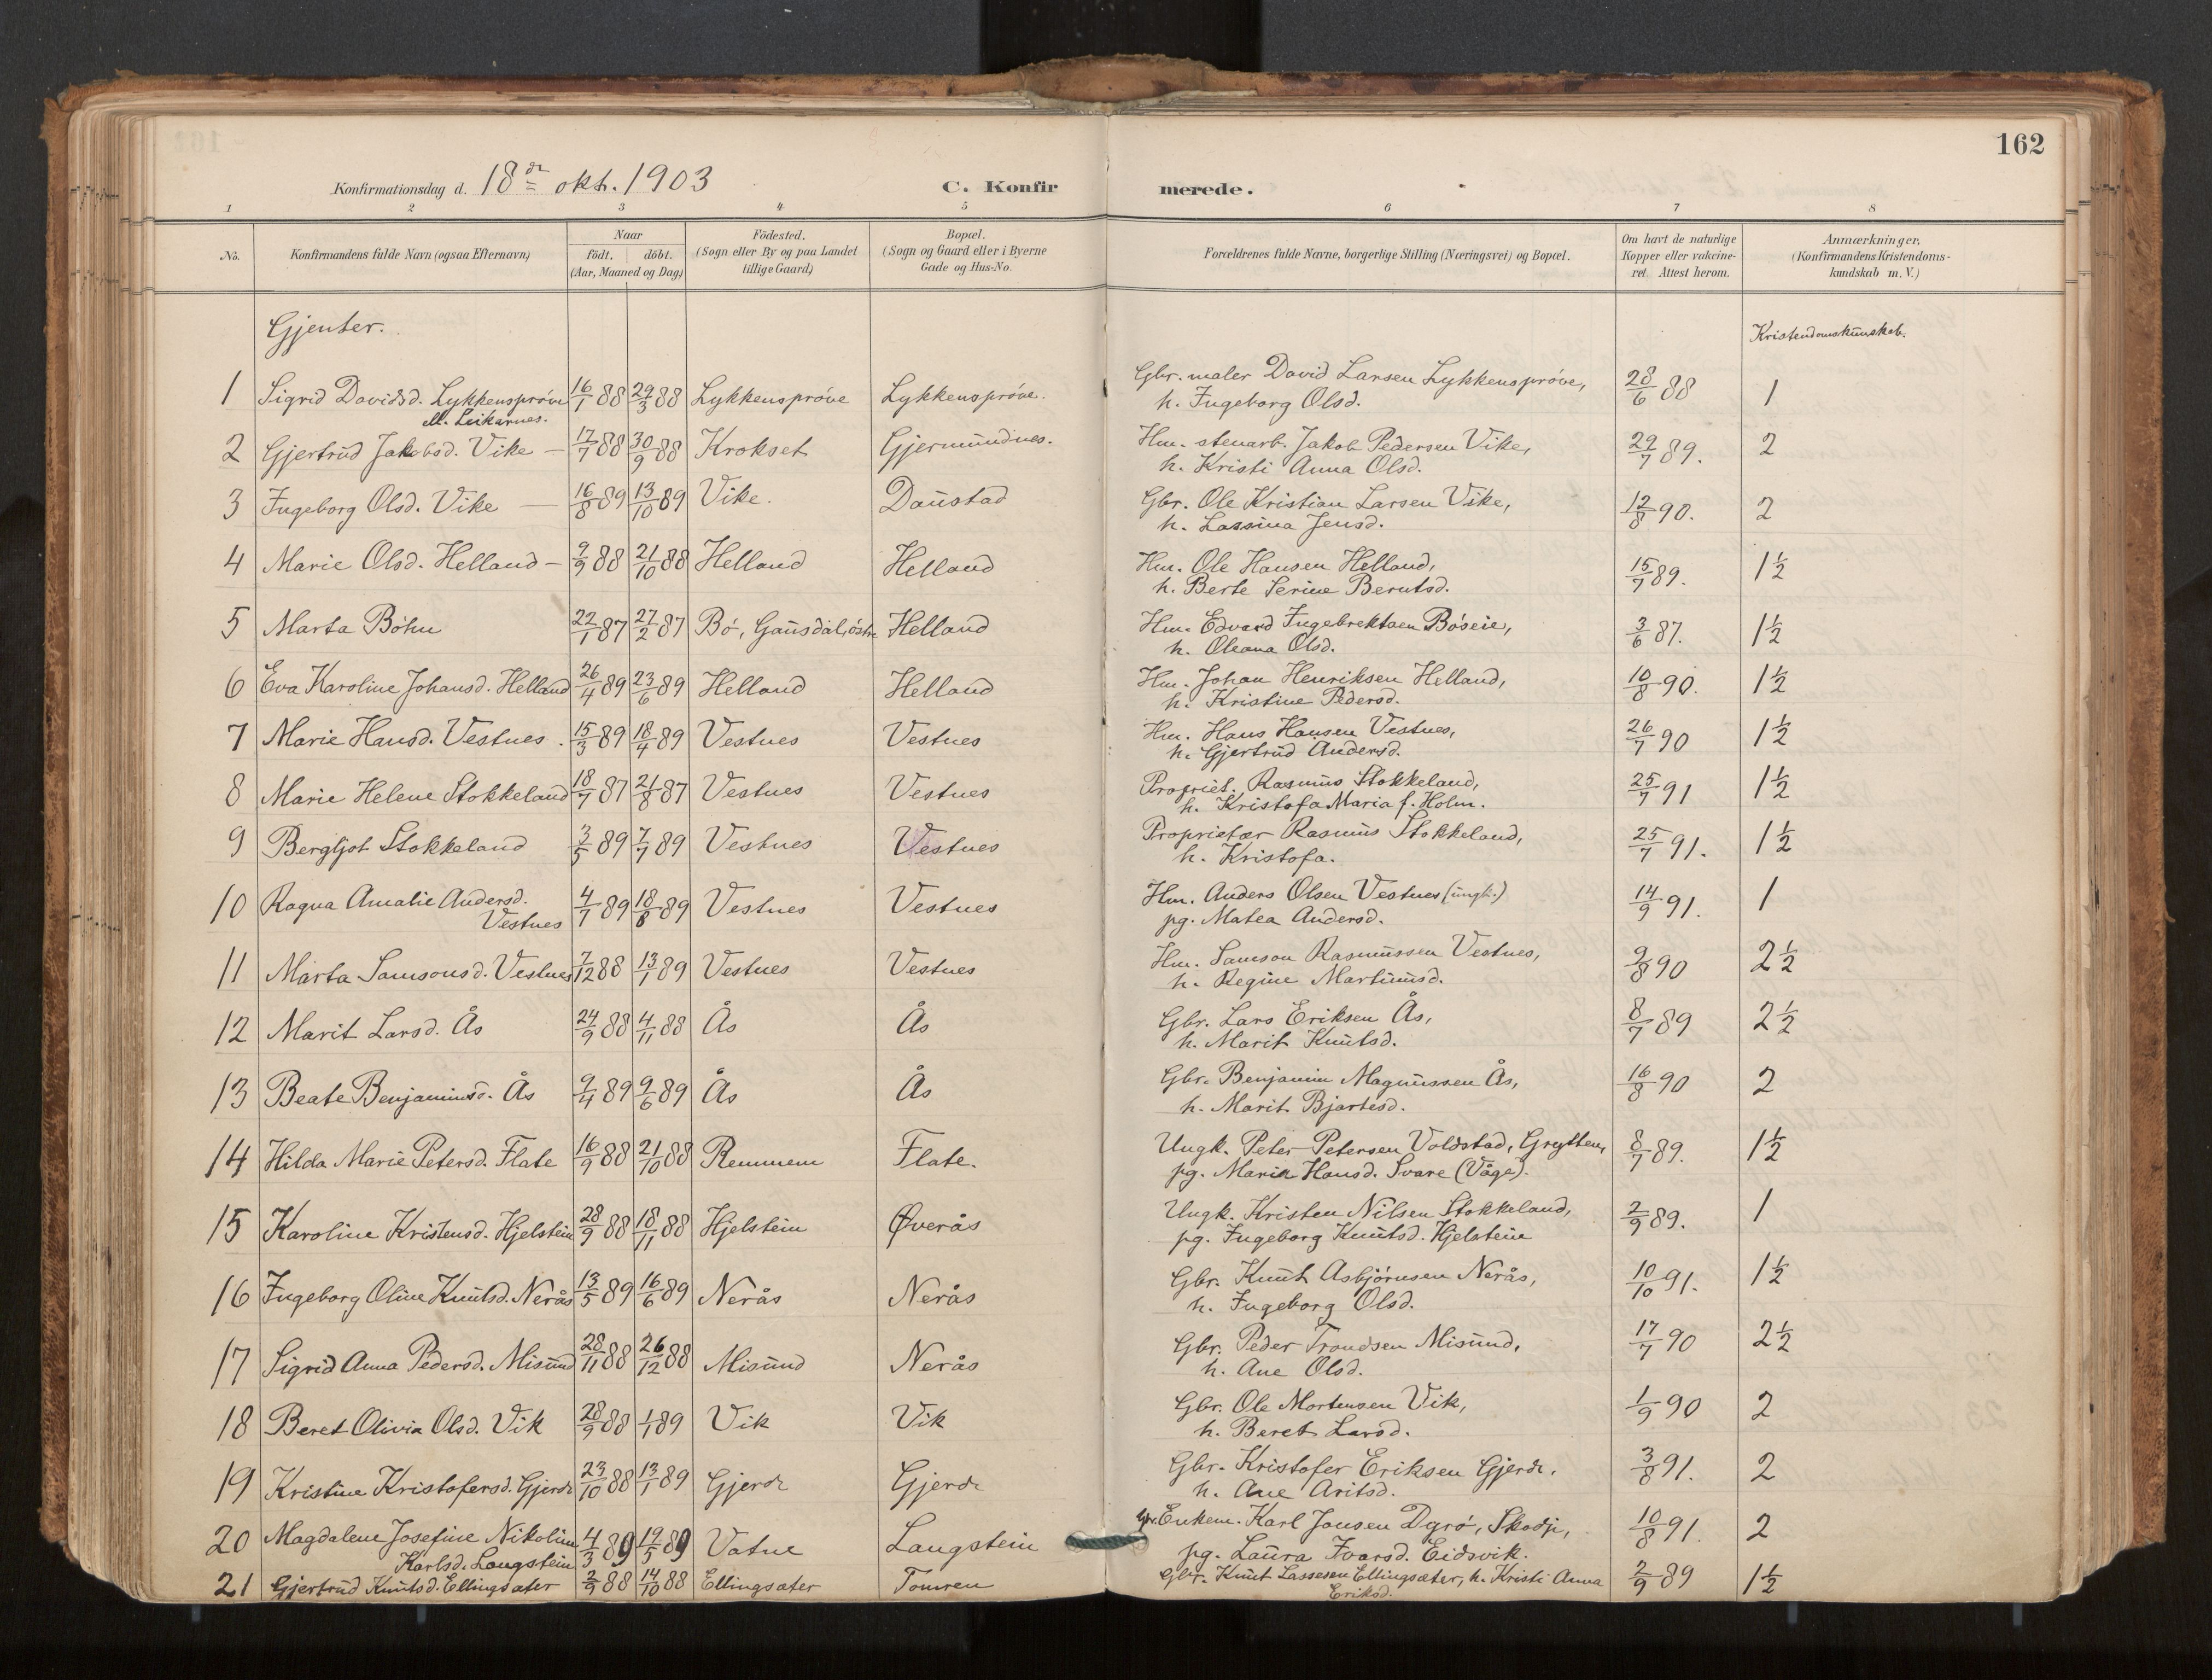 162
Konfirmationsdag d. 18de okt. 1903
C. Konfirmerede.
1 2 3 4 5 6 7 8
No. Konfirmandens fulde Navn (ogsaa Efternavn) Naar födt. döbt. (Aar, Maaned og Dag) Födested. (Sogn eller By og paa Landet tillige Gaard) Bopæl. (Sogn og Gaard eller i Byerne Gade og Hus-No. Forældrenes fulde Navne, borgerlige Stilling (Næringsvei) og Bopæl. Om havt de naturlige Kopper eller vakcineret. Attest herom. Anmærkninger. (Konfirmandens Kristendomskundskab m. V.)
Gjenter. Kristendomskunskab.
1 Sigrid Davidsd. Lykkensprøve 16/1 88 29/3 88 Lykkensprøve Lykkensprøve. Gbr. maler David Larsen Lykkensprøve, 28/6 88 1
ell. Leikarnes. h. Ingeborg Olsd.
2 Gjertrud Jakobsd. Vike — 17/7 88 30/9 88 Krokset Gjermundnes. Hm. stenarb. Jakob Pedersen Vike, 29/7 89. 2
h. Kristi Anna Olsd.
3 Ingeborg Olsd. Vike — 16/8 89 13/10 89 Vike. Daustad Gbr. Ole Kristian Larsen Vike, 12/8 90. 2
h. Lassina Jensd.
4 Marie Olsd. Helland — 9/9 88 21/10 88 Helland Helland Hm. Ole Hansen Helland, 15/7 89. 1 1/2
h. Berte Serine Berntsd.
5 Marta Böhn 22/1 87 27/2 87 Bö, Gausdal, östre Helland Hm. Edvard Ingebrektsen Böseie, 3/6 87. 1 1/2
h. Oleana Olsd.
6 Eva Karoline Johansd. Helland 26/4 89 23/6 89 Helland Helland Hm. Johan Henriksen Helland, 10/8 90. 1 1/2
h. Kristine Pedersd.
7 Marie Hansd. Vestnes. 15/3 89 18/4 89 Vestnes Vestnes Hm. Hans Hansen Vestnes, 26/7 90 1 1/2
h. Gjertrud Andersd.
8 Marie Helene Stokkeland 18/7 87 21/8 87 Vestnes Vestnes Propriet. Rasmus Stokkeland, 25/7 91 1 1/2
h. Kristofa Maria f. Holm.
9 Bergljot Stokkeland 3/5 89 7/7 89 Vestnes Vestnes Proprietær Rasmus Stokkeland, 25/7 91. 1 1/2
h. Kristofa.
10 Ragna Amalie Andersd. 4/7 89 18/8 89 Vestnes Vestnes Hm. Anders Olsen Vestnes (ungk.) 14/9 91. 1
Vestnes pg. Matea Andersd.
11 Marta Samsonsd. Vestnes 7/12 88 13/1 89 Vestnes Vestnes Hm. Samson Rasmussen Vestnes, 9/8 90 2 1/2
h. Regine Martinusd.
12 Marit Larsd. Ås 24/9 88 4/11 88 Ås Ås Gbr. Lars Eriksen Ås, 8/7 89 2 1/2
h. Marit Knutsd.
13 Beate Benjaminsd. Ås 9/4 89 9/6 89 Ås Ås Gbr. Benjamin Magnussen Ås, 16/8 90 2
h. Marit Bjartesd.
14 Hilda Marie Petersd. Flate 16/9 88 21/10 88 Remmem Flate. Ungk. Peter Petersen Voldstad, Grytten, 8/7 89. 1 1/2
pg. Maria Hansd. Svare (Våge).
15 Karoline Kristensd. Hjelstein 28/9 88 18/11 88 Hjelstein Øverås Ungk. Kristen Nilsen Stokkeland, 2/9 89. 1
pg. Ingeborg Knutsd. Hjelstein
16 Ingeborg Oline Knutsd. Nerås 13/5 89 16/6 89 Nerås Nerås Gbr. Knut Asbjörnsen Nerås, 10/10 91. 1 1/2
h. Ingeborg Olsd.
17 Sigrid Anna Pedersd. Misund 28/11 88 26/12 88 Misund Nerås Gbr. Peder Trondsen Misund, 17/7 90 2 1/2
h. Ane Olsd.
18 Beret Olivia Olsd. Vik 28/9 88 1/1 89 Vik Vik Gbr. Ole Mortensen Vik, 1/9 90 2
h. Beret Larsd.
19 Kristine Kristofersd. Gjerde 23/10 88 13/1 89 Gjerde Gjerde Gbr. Kristofer Eriksen Gjerde. 3/8 91. 2
h. Ane Aritsd.
20 Magdalene Josefine Nikoline 4/3 89 19/5 89 Vatne Langstein Enkem. Karl Jonsen Dyrö, Skodje, 10/8 91. 2
Karlsd. Langstein pg. Laura Ivarsd. Eidsvik.
21 Gjertrud Knutsd. Ellingsæter 2/9 88 14/10 88 Ellingsæter Tomren Gbr. Knut Lassesen Ellingsæter, h. Kristi Anna 2/9 89 1 1/2
Eriksd.